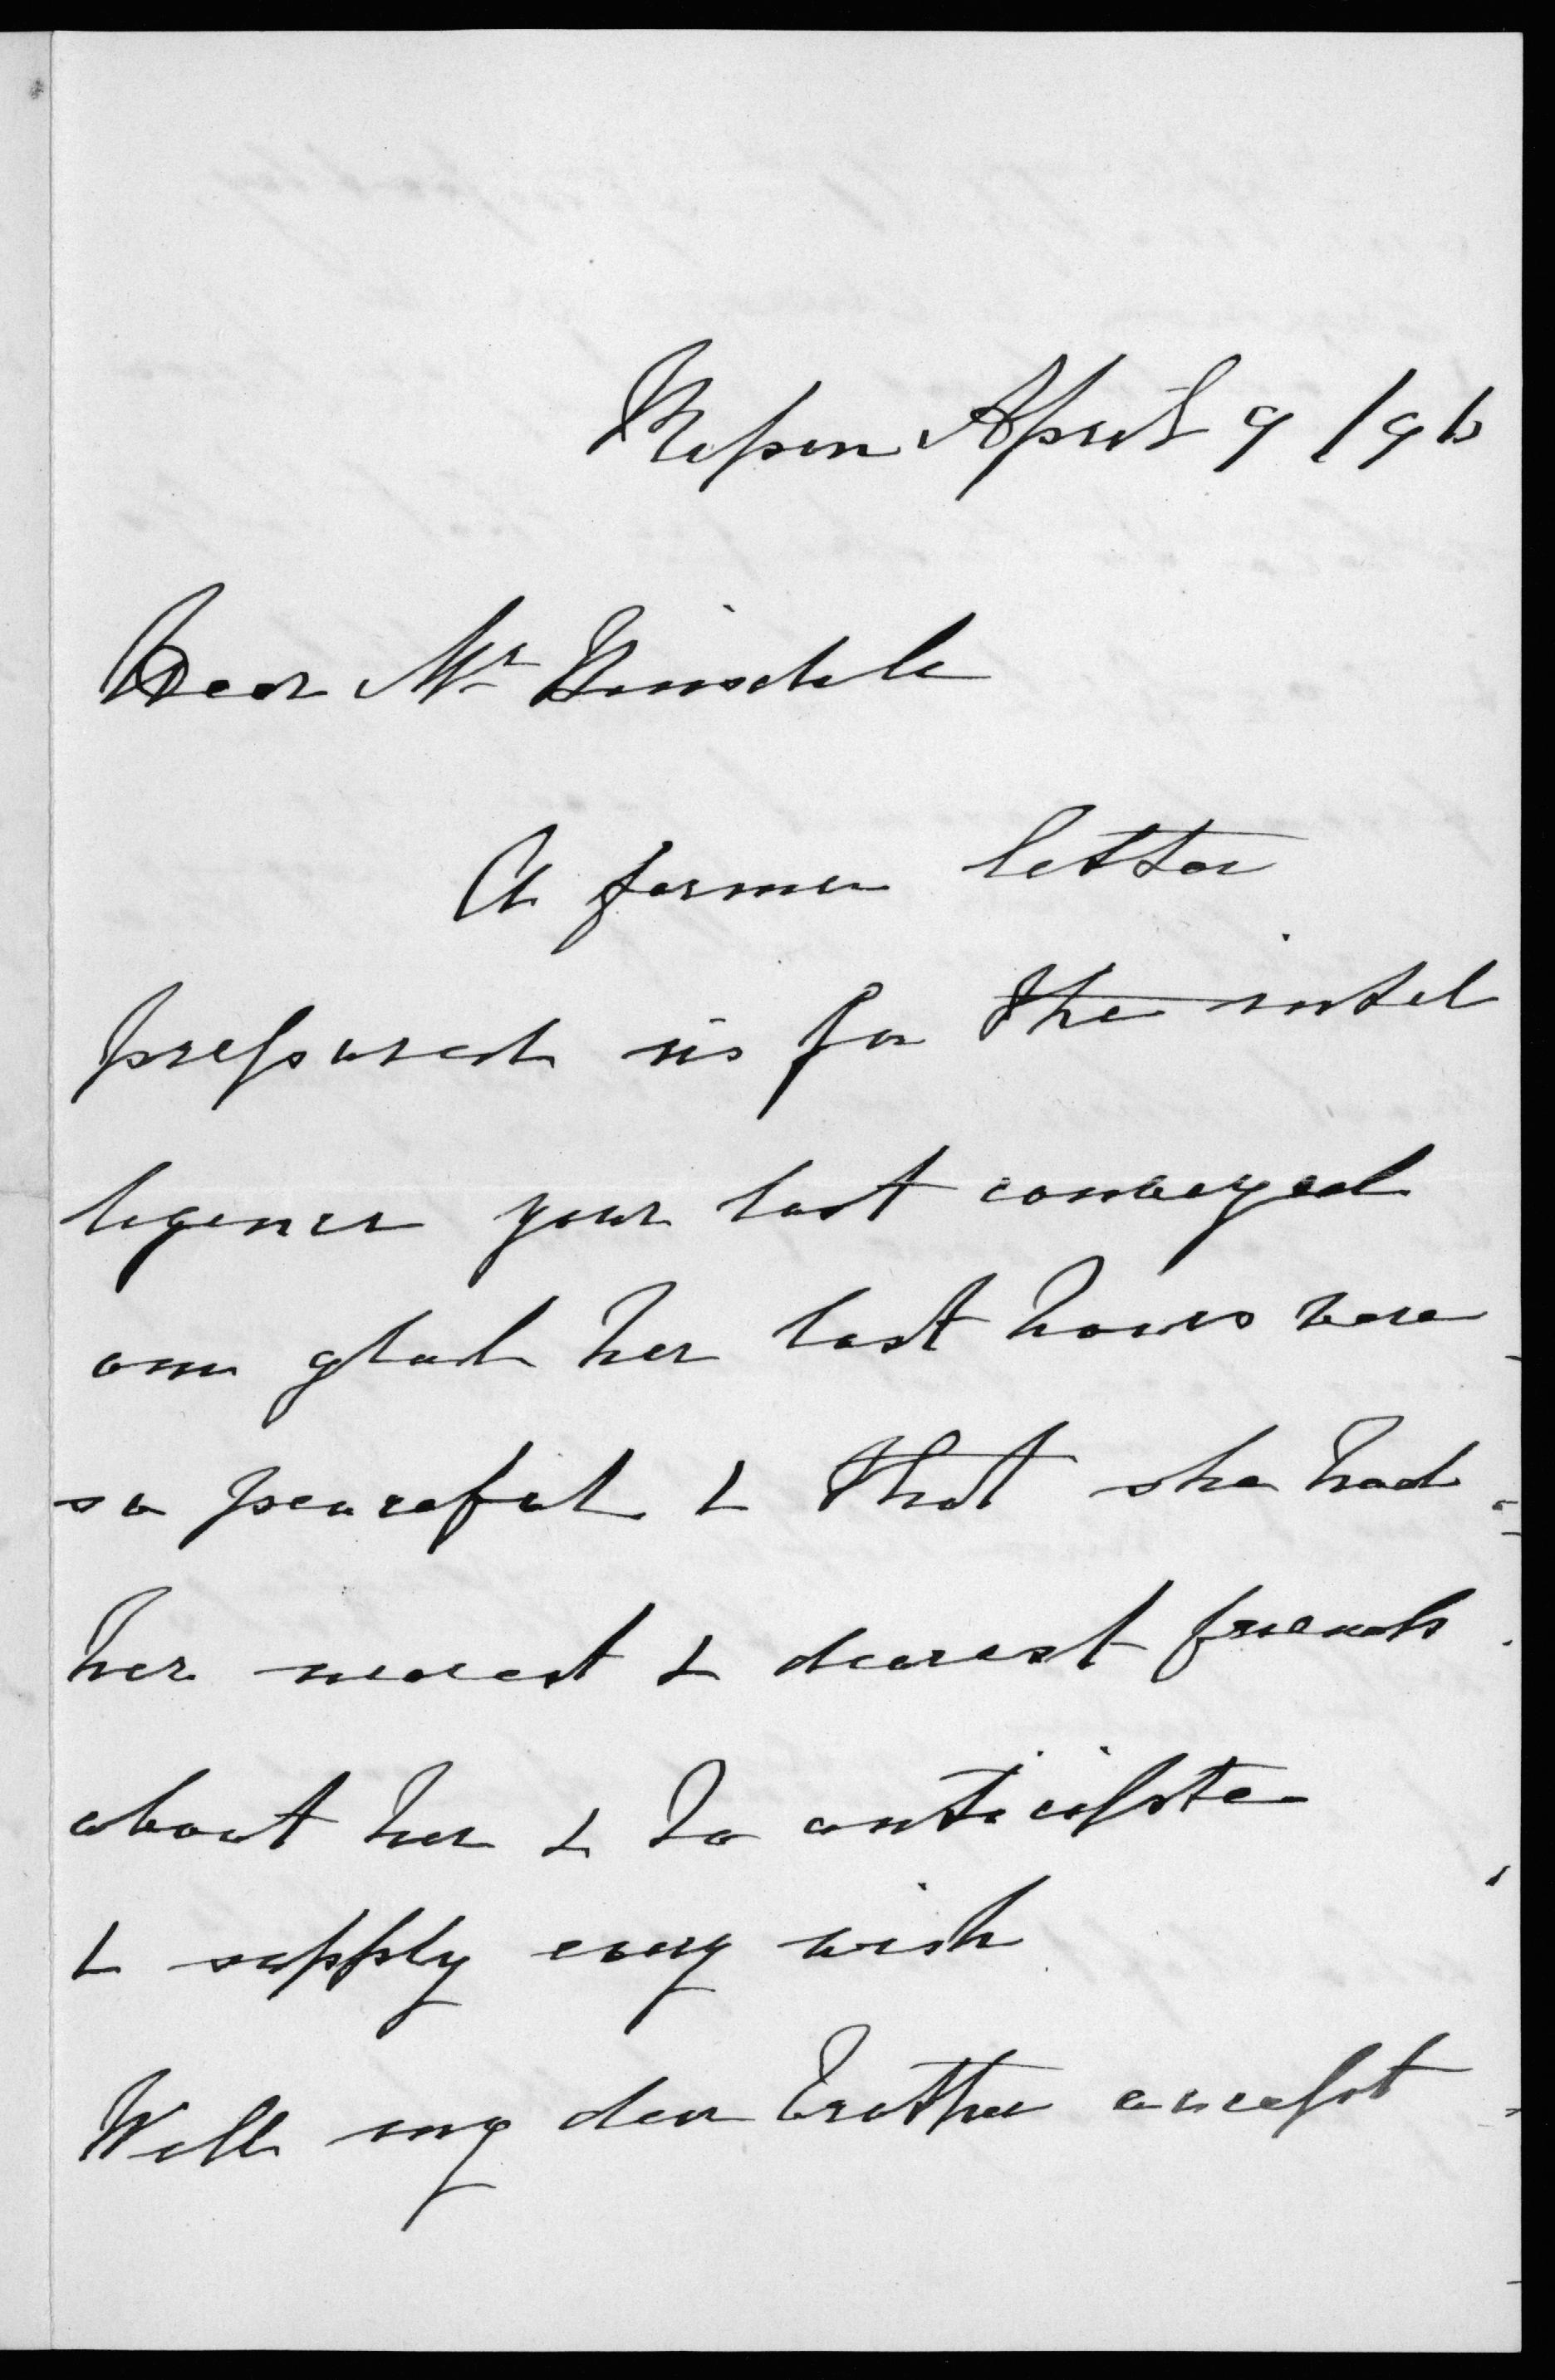 April 9 / 96
Dear Mr Hinsdale
A former letter
prepared us for the intel
ligence your last conveyed
am glad her last hours were
so peaceful & that she had
her nearest & dearest friends
about her & to anticipate
& supply every wish
Will my dear brother accept